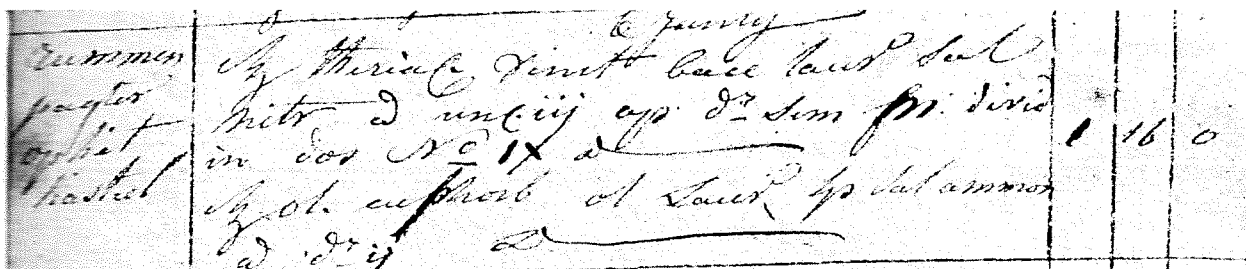 6 Juny
rummen
pagter
op het
kasteel
℞ theriac vinct bacc laur sal
nitr a unc iij op dr sem fn. divid
in dos No IX a
℞ ol euphorb ol Laur sp sal ammon
a dr ij
1 16 0